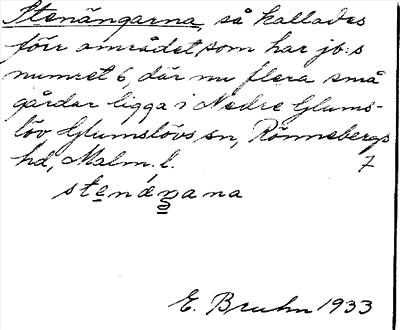 Stenängarna, så kallades
förr området, som har jb:s
numret 6, där nu flera små
gårdar ligga i Nedre Glums-
löv Glumslövs sn, Rönnebergs
hd, Malm. l. 7
stenáŋana
E. Bruhn 1933